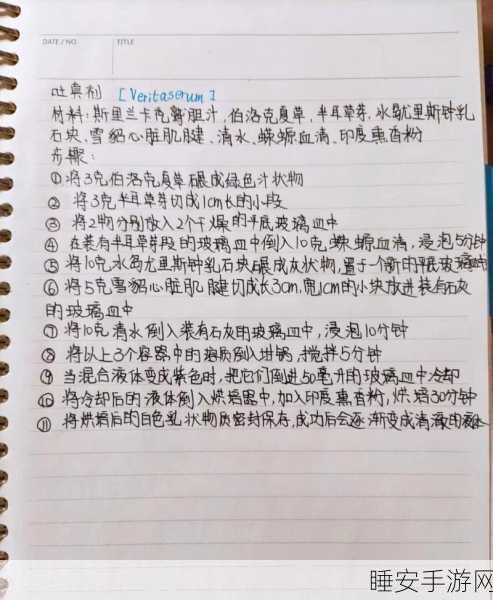 DATE / NO.
TITLE
吐真剂 [Veritaserum]
材料:斯里兰卡克鹩胆汁,伯洛克夏草,半耳草芽,水岛尤里斯钟乳
石块、雪貂心脏肌腱、清水、蝾螈血清、印度熏香粉
步骤:
①将3克伯洛克夏草碾成绿色汁状物
② 将3克半耳草芽切成1cm长的小段
③ 将2物分别放入2个干燥的平底玻璃皿中
④ 在装有半耳草芽段的玻璃皿中倒入10克蝾螈血清,浸泡5分钟
⑤ 将10克水岛尤里斯钟乳石块碾成灰状物,置于一个新的平底玻璃皿中
⑥ 将5克雪貂心脏肌腱切成长3cm,宽1cm的小块放进装有石灰
的玻璃皿中
⑦ 将10克清水倒入装有石灰的玻璃皿中,浸泡10分钟
⑧ 将以上3个容器中的物质倒入坩埚,搅拌5分钟
⑨ 当混合液体变成紫色时,把它们倒进50毫升的玻璃皿中冷却
⑩ 将冷却后的液体倒入烘焙器中,加入印度熏香粉,烘焙30分钟
⑪ 将烘焙后的白色乳状物质密封保存,成功后会逐渐变成清澈的液体
睡安手游网